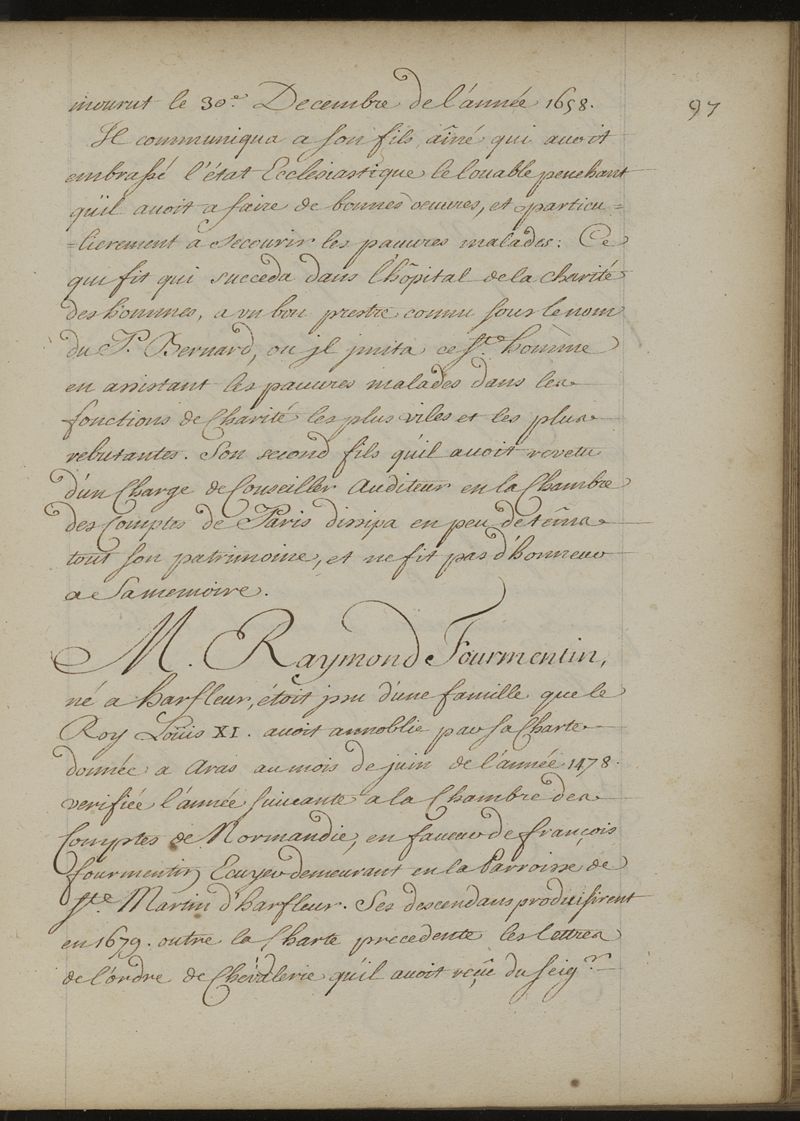 mourut le 30.e Decembre de l'année 1658.
97
Il communiqua a son fils aîné qui avoit
embrassé l'état Ecclesiastique le louable penchant
qu'il avoit a faire de bonnes oeuvres, et particu=
=lierement a secourir les pauvres malades. Ce
qui fit qui succeda dans l'hôpital de la charité
des hommes, a vn bon prestre connu sous le nom
du P. Bernard, ou jl jmita ce St. homme
en assistant les pauvres malades dans les
fonctions de Charité les plus viles et les plus
rebutantes. Son second fils qu'il avoit revetu
d'un Charge de Conseiller Auditeur en la Chambre
des Comptes de Paris dissipa en peu de têms
tout son patrimoine, et ne fit pas d'honneur
a Sa memoire.
M. Raymond Fourmentin,
né a harfleur, étoit jssu d'une famille que le
Roy Loüis XI. avoit annoblie par sa Charte
donnée a Aras au mois de juin de l'année 1478.
verifiée l'année suivante a la Chambre des
Comptes de Normandie, en faveur de françois
fourmentin Ecuyer demeurant en la Parroisse de
Ste. Martin d'harfleur. Ses descendans produisirent
en 1679. outre la Charte precedente les lettres
de l'ordre de Chevalerie qu'il avoit reçüe du Seigr.